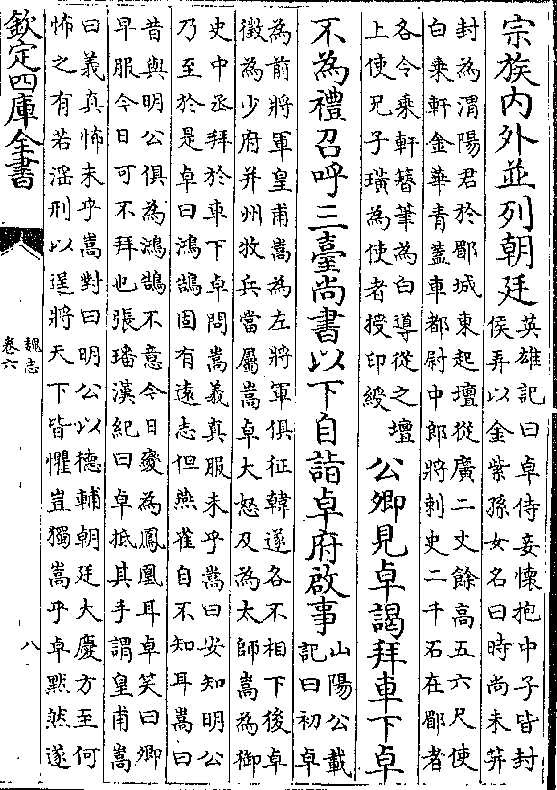 宗族内外並列朝廷
英雄記曰卓侍妾懐抱中子皆封
侯弄以金紫孫女名曰時尚未笄
封為渭陽君於郿城東起壇從廣二丈餘高五六尺使
白乗軒金華青蓋車都尉中郎將刺史二千石在郿者
各令乗軒簪筆為白導從之壇
上使兄子璜為使者授印綬
公卿見卓謁拜車下卓
不為禮召呼三臺尚書以下自詣卓府啟事
山陽公載
記曰初卓
為前將軍皇甫嵩為左將軍俱征韓遂各不相下後卓
徵為少府并州牧兵當屬嵩卓大怒及為太師嵩為御
史中丞拜於車下卓問嵩義真服未乎嵩曰安知明公
乃至於是卓曰鴻鵠固有遠志但燕雀自不知耳嵩曰
昔與明公俱為鴻鵠不意今日變為鳳凰耳卓笑曰卿
早服今日可不拜也張璠漢紀曰卓抵其手謂皇甫嵩
曰義真怖未乎嵩對曰明公以德輔朝廷大慶方至何
怖之有若淫刑以逞將天下皆懼豈獨嵩乎卓黙然遂
欽定四庫全書
魏志
卷六
八